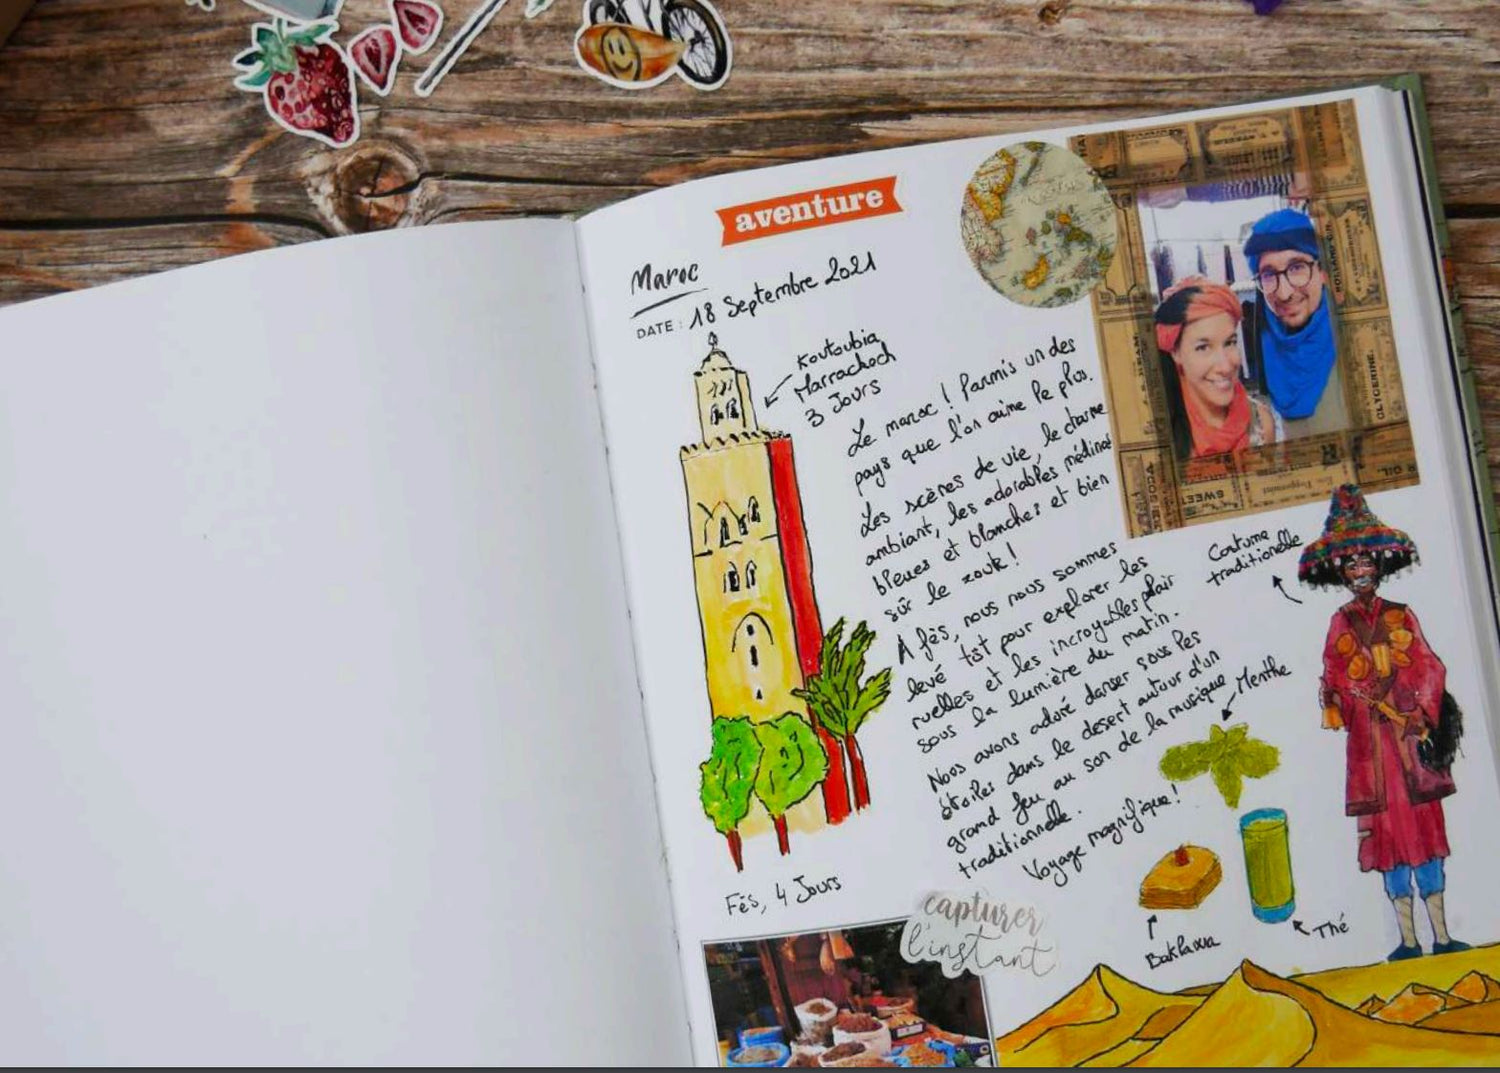 aventure
Maroc
DATE : 18 Septembre 2021
Koutoubia
Marrackech
3 Jours
Le maroc ! Parmis un des
pays que l'on aime le plus.
Les scènes de vie, le charme
ambiant, les adorables médinas
bleues et blanches et bien
sûr le zouk !
À fès, nous nous sommes
levé tôt pour explorer les
ruelles et les incroyables
sous la lumière du matin.
Nous avons adoré danser sous les
étoiles dans le désert autour d'un
grand feu au son de la musique
traditionnelle.
Voyage magnifique !
Costume
traditionelle
Menthe
Baklawa
Thé
Fès, 4 Jours
capturer
l'instant
GLYCERINE.
SWEET
SODA